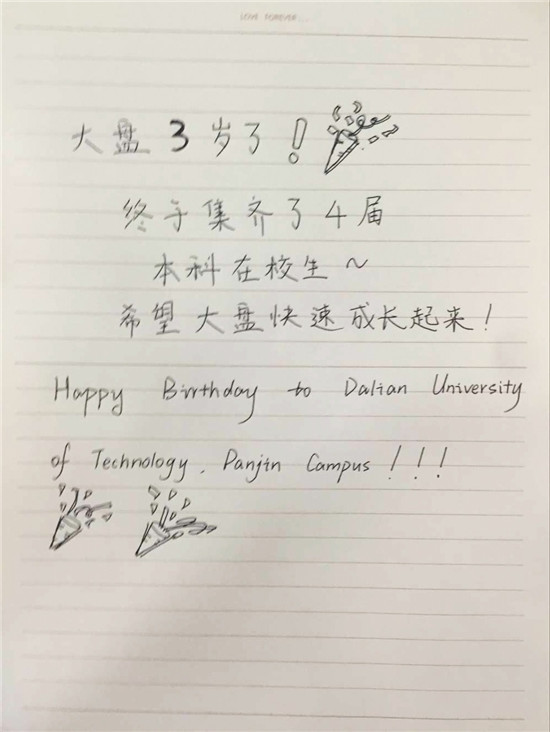 LOVE FOREVER...
大盘3岁了!
终于集齐了4届
本科在校生~
希望大盘快速成长起来!
Happy Birthday to Dalian University
of Technology, Panjin Campus!!!